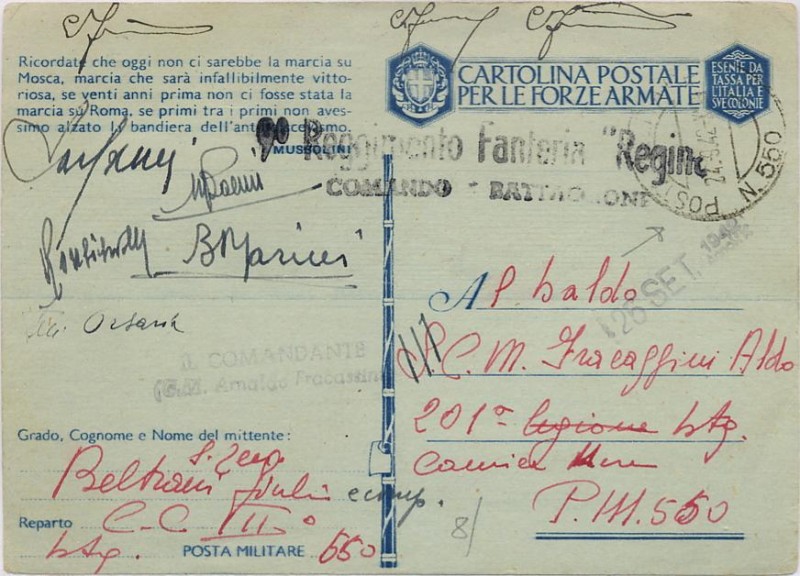 Ricordate che oggi non ci sarebbe la marcia su
Mosca, marcia che sarà infallibilmente vitto-
riosa, se venti anni prima non ci fosse stata la
marcia su Roma, se primi tra i primi non aves-
simo alzato la bandiera dell'antibolscevismo.
MUSSOLINI
CARTOLINA POSTALE
PER LE FORZE ARMATE
ESENTE DA
TASSA PER
L'ITALIA E
SVE COLONIE
9° Reggimento Fanteria "Regina
COMANDO BATTAGLIONE
POST N. 550
24.9.42
26 SET. 1942
B Marini
Orsaria
IL COMANDANTE
Arnaldo Fracassini
Al baldo
S.C.M. Fracassini Aldo
201ª legione btg.
camicie nere
P.M. 550
Grado, Cognome e Nome del mittente:
Beltrami Giulio
Reparto C.C. III° comp.
btg. POSTA MILITARE 550
8/